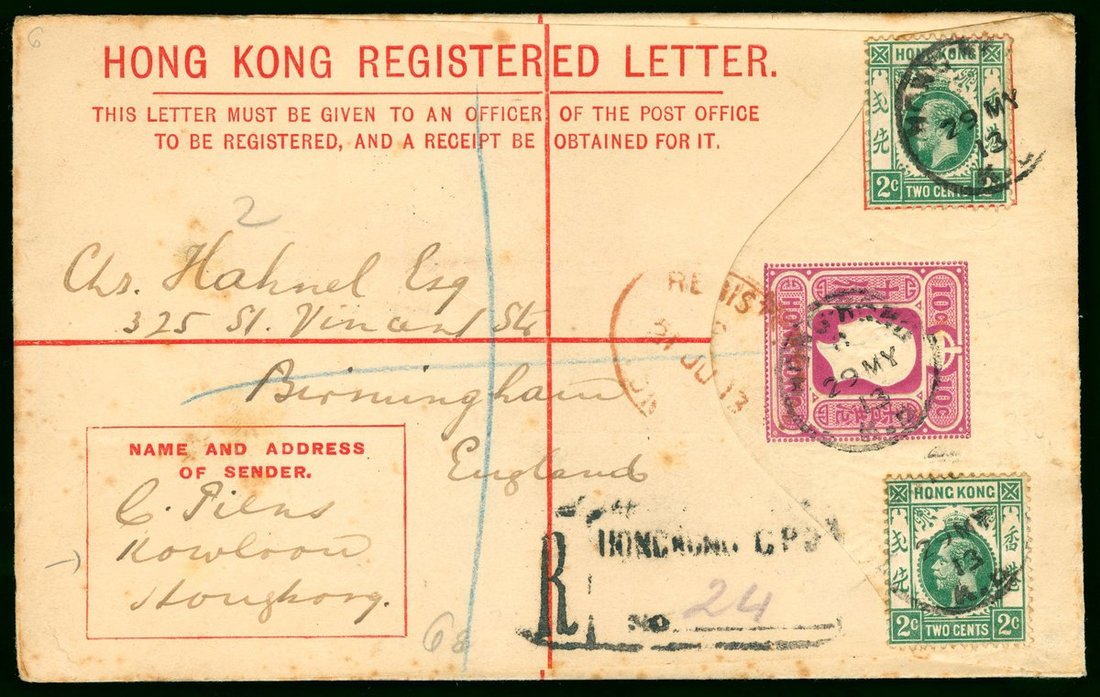 6
HONG KONG REGISTERED LETTER.
THIS LETTER MUST BE GIVEN TO AN OFFICER OF THE POST OFFICE
TO BE REGISTERED, AND A RECEIPT BE OBTAINED FOR IT.
HONG KONG
香港
弍先
2c TWO CENTS 2c
29 MY
13
2
Chs. Hahnel Esq
325 St. Vincent Str
Birmingham
England
REGIST
JU 13
10c
10c
29 MY
13
NAME AND ADDRESS
OF SENDER.
C. Piens
Kowloon
Hongkong.
R
HONGKONG G.P.O
No. 24
68
HONG KONG
香港
弍先
2c TWO CENTS 2c
13